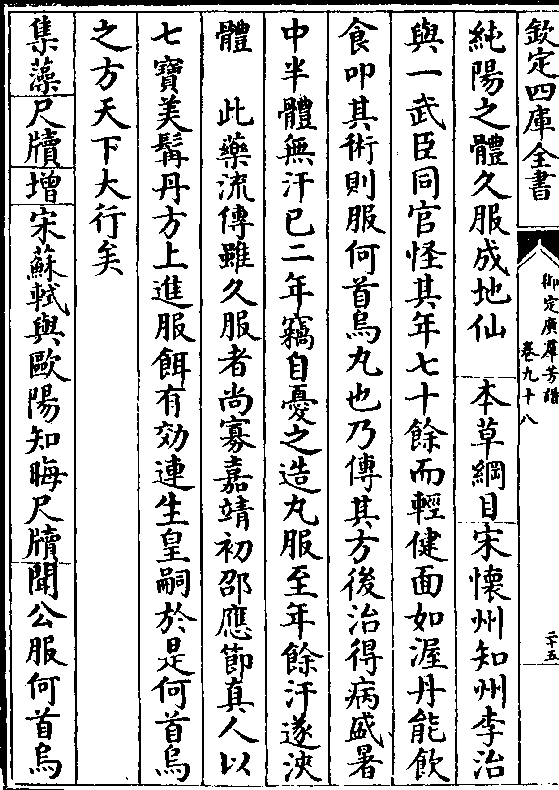 欽定四庫全書
御定廣羣芳譜
卷九十八
二十五
純陽之體久服成地仙　本草綱目宋懷州知州李治
與一武臣同官怪其年七十餘而輕健面如渥丹能飲
食叩其術則服何首烏丸也乃傳其方後治得病盛暑
中半體無汗已二年竊自憂之造丸服至年餘汗遂浹
體　此藥流傳雖久服者尚寡嘉靖初邵應節真人以
七寶美髯丹方上進服餌有效連生皇嗣於是何首烏
之方天下大行矣
集藻尺牘增宋蘇軾與歐陽知晦尺牘聞公服何首烏